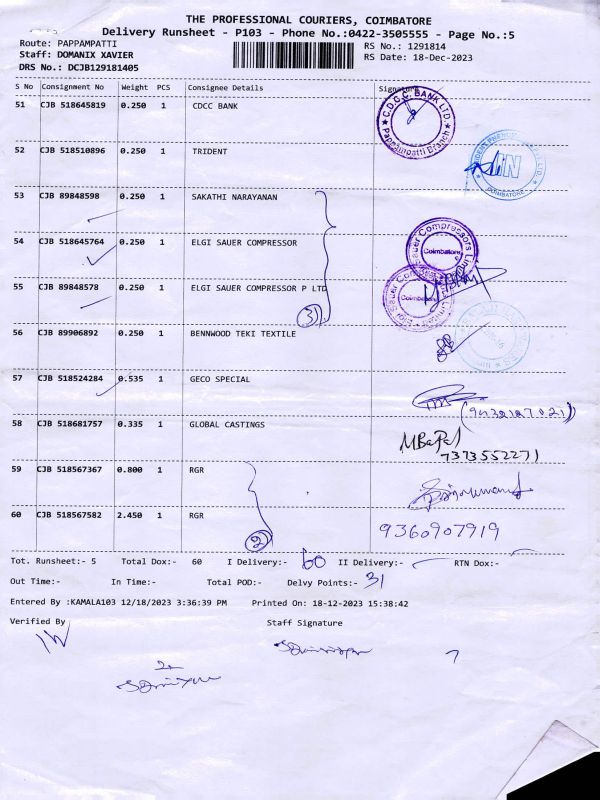 THE PROFESSIONAL COURIERS, COIMBATORE
Delivery Runsheet - P103 - Phone No.:0422-3505555 - Page No.:5
Route: PAPPAMPATTI
RS No.: 1291814
Staff: DOMANIX XAVIER
RS Date: 18-Dec-2023
DRS No.: DCJB129181405
S No Consignment No Weight PCS Consignee Details Signature
51 CJB 518645819 0.250 1 CDCC BANK
C.D.C.C. BANK LTD
Pappampatti Branch
52 CJB 518510896 0.250 1 TRIDENT
COIMBATORE
53 CJB 89848598 0.250 1 SAKATHI NARAYANAN
54 CJB 518645764 0.250 1 ELGI SAUER COMPRESSOR
Sauer Compressors Limited
Coimbatore
55 CJB 89848578 0.250 1 ELGI SAUER COMPRESSOR P LTD
3
56 CJB 89906892 0.250 1 BENNWOOD TEKI TEXTILE
57 CJB 518524284 0.535 1 GECO SPECIAL
58 CJB 518681757 0.335 1 GLOBAL CASTINGS
7373552271
59 CJB 518567367 0.800 1 RGR
60 CJB 518567582 2.450 1 RGR
2
9360907919
Tot. Runsheet:- 5 Total Dox:- 60 I Delivery:- 60 II Delivery:- RTN Dox:-
Out Time:- In Time:- Total POD:- Delvy Points:- 31
Entered By :KAMALA103 12/18/2023 3:36:39 PM Printed On: 18-12-2023 15:38:42
Verified By Staff Signature